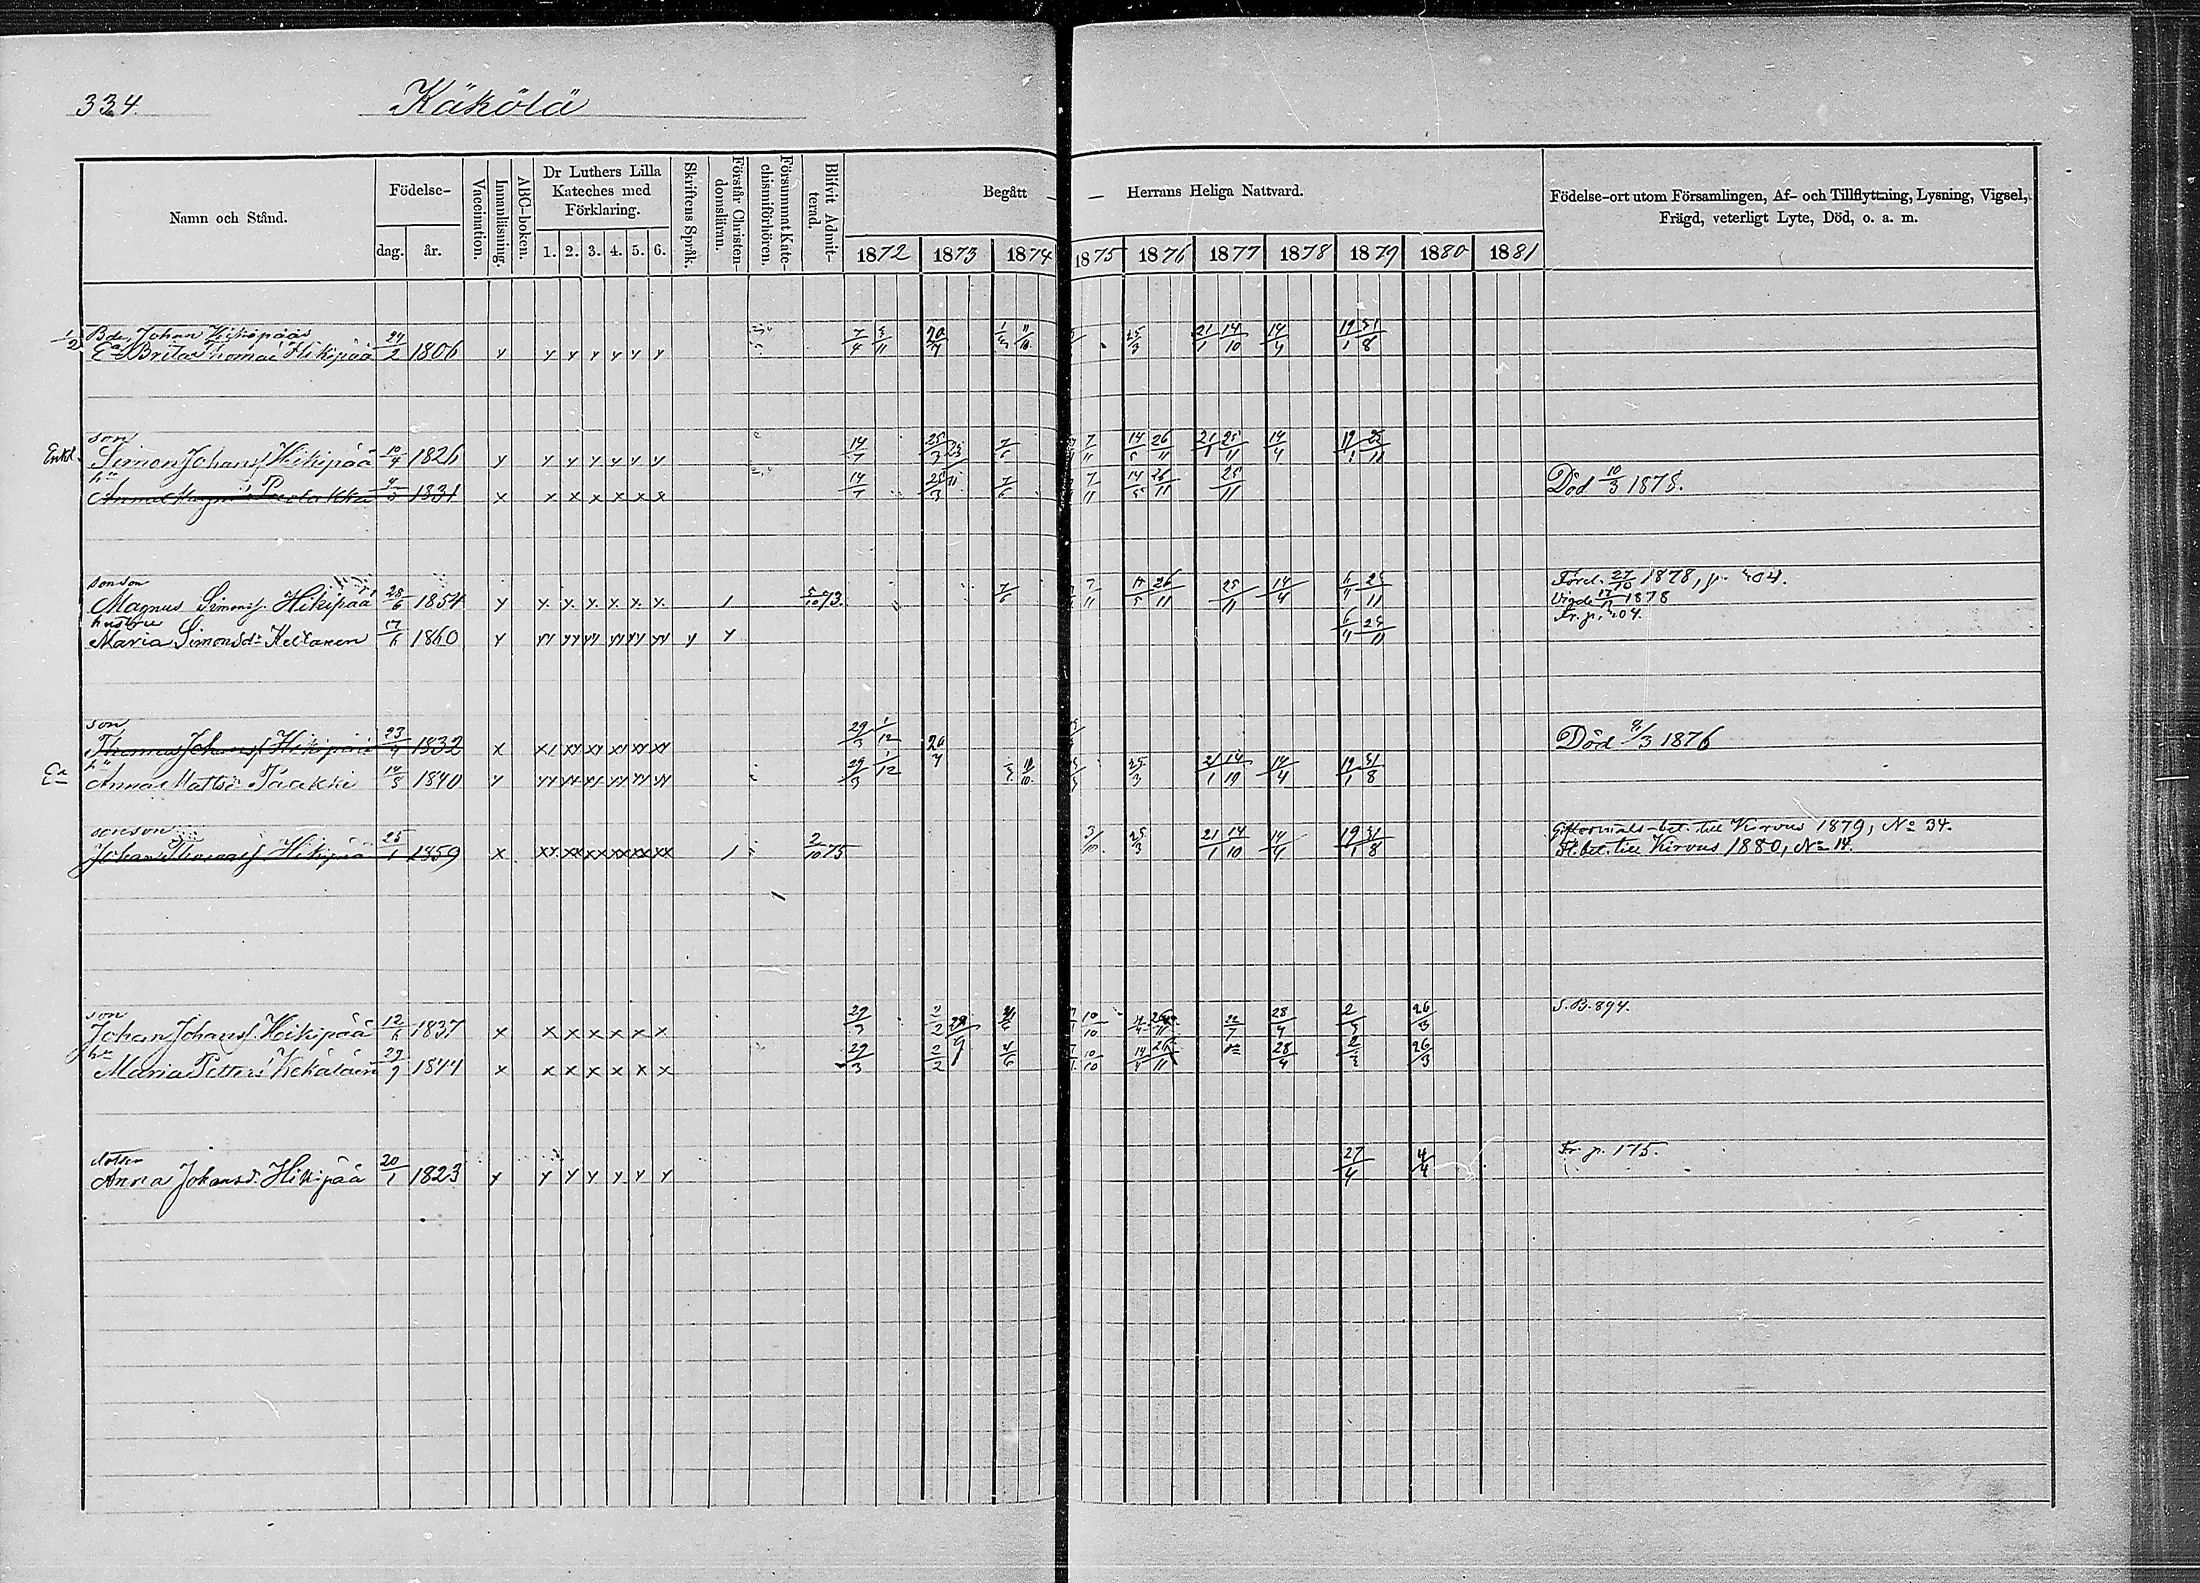 334. Käkölä
Namn och Stånd. Födelse- dag. år. Vaccination. Innanläsning. ABC-boken. Dr Luthers Lilla Kateches med Förklaring. 1. 2. 3. 4. 5. 6. Skriftens Språk. Förstår Christendomsläran. Försummat Katechismiförhören. Blifvit Admitterad. Begått — Herrans Heliga Nattvard. 1872 1873 1874 1875 1876 1877 1878 1879 1880 1881 Födelse-ort utom Församlingen, Af- och Tillflyttning, Lysning, Vigsel, Frägd, veterligt Lyte, Död, o. a. m.
1/2 Bde Johan Hikipääs
Ea Brita Thomasd: Hikipää 24/2 1806 y y y y y y y 7/4 3/11 20/4 25/3 21/1 14/10 14/4 19/1 31/8
son
Enkl. Simon Johansf. Hikipää 10/4 1826 y y y y y y y 14/7 25/3 7/6 7/11 14/5 26/11 21/1 25/11 14/4 19/1 25/11
hu
Anna 1831 x x x x x x x 14/7 25/3 7/6 7/11 14/5 26/11 25/11 Död 10/3 1878.
sonson
Magnus Simonsf. Hikipää 28/6 1854 y y y y y y y 1 5/10 73. 7/6 7/11 14/5 26/11 25/11 14/4 6/4 25/11 Förel. 27/10 1878, p. 404.
Vigde 17/11 1878
hustru
Maria Simonsd: Keltanen 17/6 1860 y yy yy yy yy yy yy y y 6/4 25/11 Fr. p. 404.
son
Thomas Johansf. Hikipää 23/4 1832 x xx xx xx xx xx xx 29/3 1/12 20/4 Död 4/3 1876
hu
Ea Anna Mattsd: Paakki 14/3 1840 y yy yy yy yy yy yy 29/3 1/12 25/3 21/1 14/10 14/4 19/1 31/8
sonson
Johan Thomasf. Hikipää 25/1 1859 x xx xx xx xx xx xx 1 2/10 75 3/10 25/3 21/1 14/10 14/4 19/1 31/8 Giftermåls-bet. till Kirvus 1879, No 34.
Fl. bet. till Kirvus 1880, No 14.
son
Johan Johansf. Hikipää 12/6 1837 x x x x x x x 29/3 2/2 10/10 22/7 28/4 2/3 26/3 S.B. 894.
hu
Maria Petters: Kekäläin 29/9 1844 x x x x x x x 29/3 2/2 10/10 14/4 26/11 28/4 2/3 26/3
dotter
Anna Johansd. Hikipää 20/1 1823 y y y y y y y 27/4 4/4 Fr. p. 175.